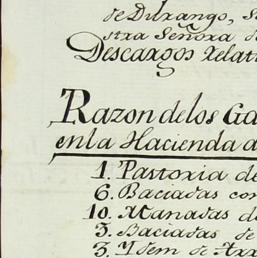 de Durango, S
stra Señora d
Descargos Relati
Razon de los Ga
en la Hacienda a
1. Pastoria de
6. Baciadas con
10. Manadas de
3. Baciadas de
3. Ydem de Axx